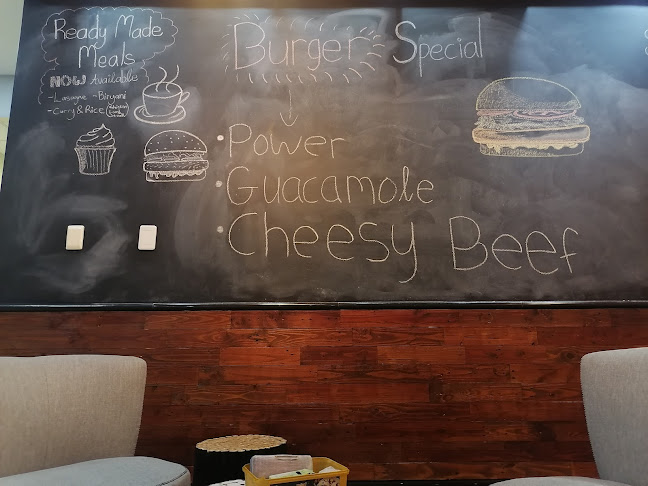 Ready Made
Meals
NOW Available
- Lasagne - Biryani
- Curry & Rice
Burger Special
• Power
• Guacamole
• Cheesy Beef